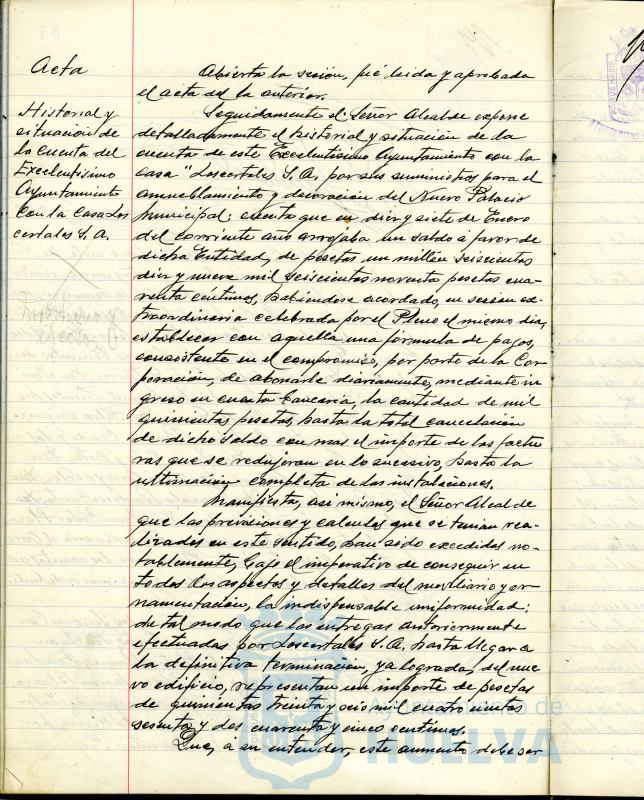 Acta
Historial y
situación de
la cuenta del
Excelentísimo
Ayuntamiento
con la Casa Los
certales S.A.
Abierta la sesión, fué leida y aprobada
el acta de la anterior.
Seguidamente el Señor Alcalde expone
detalladamente el historial y situación de la
cuenta de este Excelentísimo Ayuntamiento con la
casa "Loscertales S.A. por sus suministros para el
amueblamiento y decoración del Nuevo Palacio
Municipal; cuenta que en diez y siete de Enero
del corriente año arrojaba un saldo a favor de
dicha Entidad, de pesetas un millón seiscientas
diez y nueve mil seiscientos noventa pesetas cua-
renta céntimos, habiéndose acordado, en sesión ex-
traordinaria celebrada por el Pleno el mismo dia,
establecer con aquella una fórmula de pagos,
consistente en el compromiso, por parte de la Cor
poración, de abonarle diariamente, mediante in
greso en cuenta bancaria, la cantidad de mil
quinientas pesetas, hasta la total cancelación
de dicho saldo con mas el importe de las factu
ras que se redujeran en lo sucesivo, hasta la
ultimación completa de las instalaciones.
Manifiesta, asi mismo, el Señor Alcalde
que las previsiones y calculos que se tenian rea-
lizados en este sentido, han sido excedidos no-
tablemente, bajo el imperativo de conseguir en
todos los aspectos y detalles del moviliario y or-
namentación, la indispensable uniformidad;
de tal modo que las entregas anteriormente
efectuadas por Loscertales S.A. hasta llegar a
la definitiva terminación, ya lograda, del nue
vo edificio, representan un importe de pesetas
de quinientas treinta y seis mil cuatrocientas
sesenta y dos cuarenta y cinco centimos.
Que, á su entender, este aumento debe ser
Ayuntamiento de
HUELVA